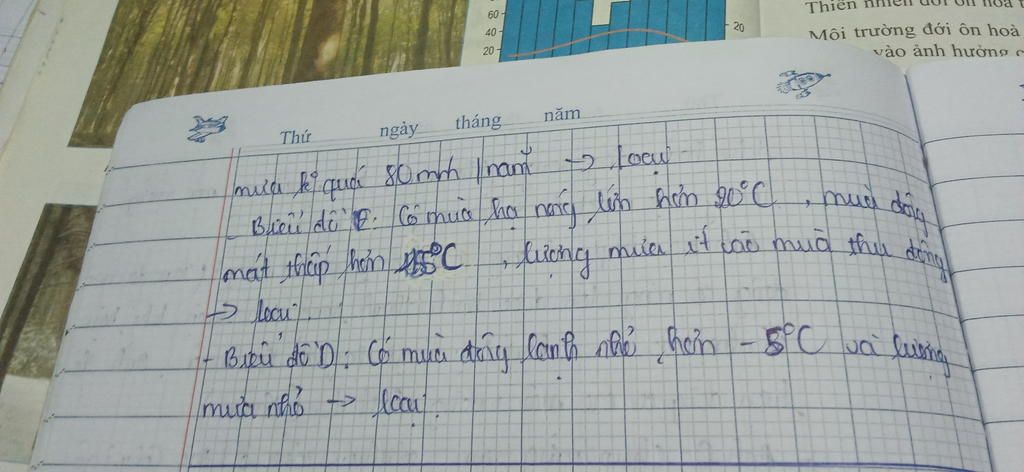 60
40
20
20
Thiên nhiên đới ôn hoà
Môi trường đới ôn hoà
vào ảnh hưởng
Thứ ngày tháng năm
mưa kº quá 80mm / năm → loại
- Biểu đồ C: Có mùa hạ nóng lớn hơn 20°C, mùa đông
mát thấp hơn 15°C, lượng mưa ít vào mùa thu đông
→ loại.
- Biểu đồ D: Có mùa đông lạnh nhỏ hơn -5°C và lượng
mưa nhỏ → loại.